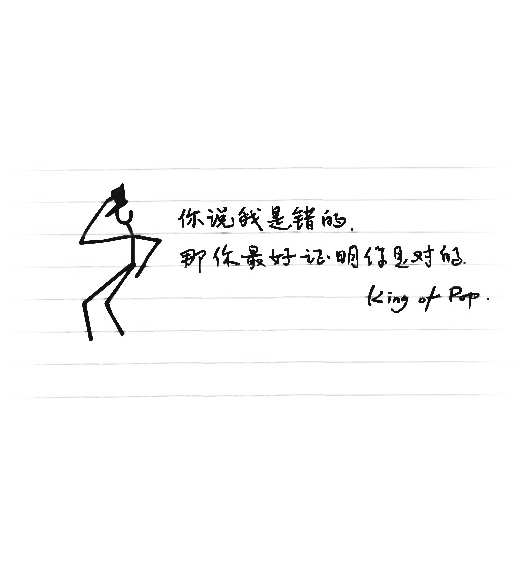 你说我是错的,
那你最好证明你是对的.
King of Pop.